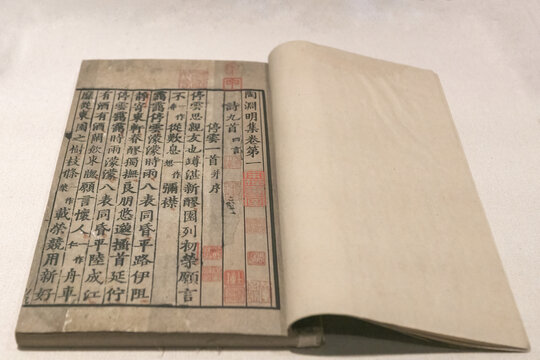 陶淵明集卷第一
詩九首四言
停雲一首并序
停雲思親友也罇湛新醪園列初榮願言
不一作從歎息一作想彌襟
靄靄停雲濛濛時雨八表同昏平路伊阻
靜寄東軒春醪獨撫良朋悠邈搔首延佇
停雲靄靄時雨濛濛八表同昏平陸成江
有酒有酒閒飲東牕願言懷人一作仁舟車
靡從東園之樹枝條一作榮載榮競用新好